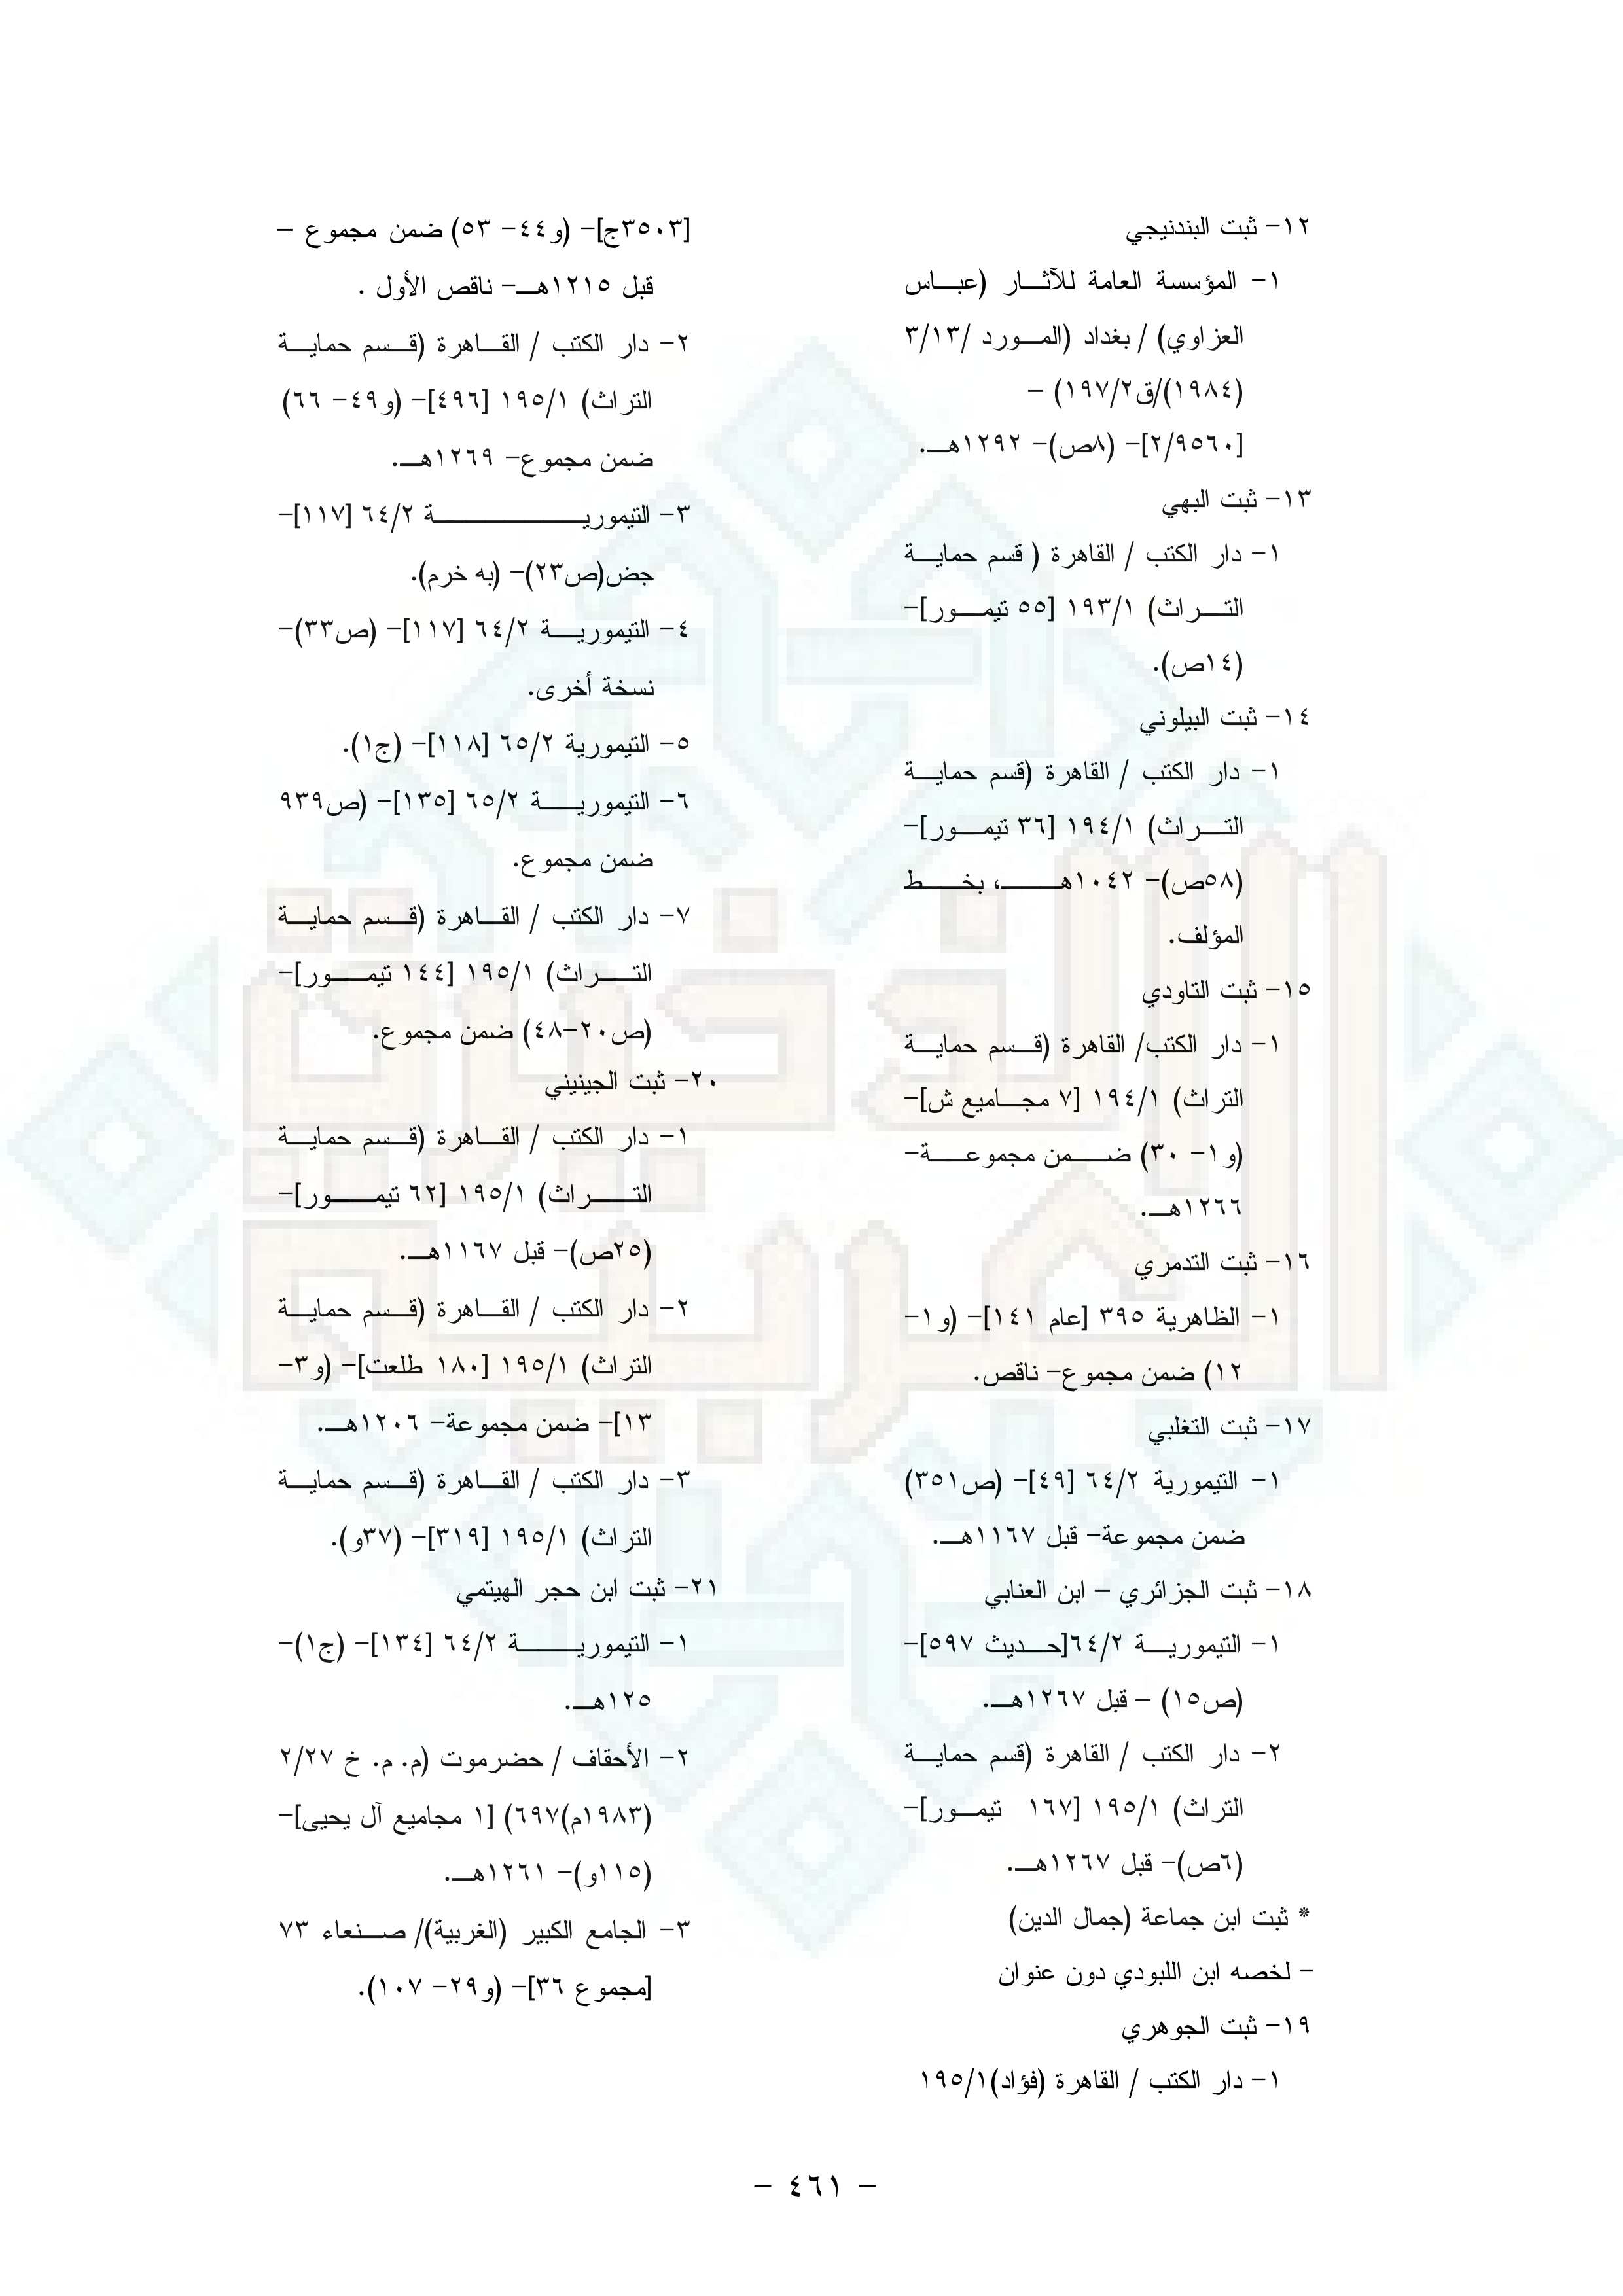 ١٢- ثبت البندنيجي
١- المؤسسة العامة للآثار (عباس
العزاوي) / بغداد (المورد /٣/١٣
(١٩٨٤)/ق١٩٧/٢) –
[٢/٩٥٦٠]- (٨ص)- ١٢٩٢هـ.
١٣- ثبت البهي
١- دار الكتب / القاهرة ( قسم حماية
التراث) ١٩٣/١ [٥٥ تيمور]-
(١٤ص).
١٤- ثبت البيلوني
١- دار الكتب / القاهرة (قسم حماية
التراث) ١٩٤/١ [٣٦ تيمور]-
(٥٨ص)- ١٠٤٢هـ، بخط
المؤلف.
١٥- ثبت التاودي
١- دار الكتب/ القاهرة (قسم حماية
التراث) ١٩٤/١ [٧ مجاميع ش]-
(و١- ٣٠) ضمن مجموعة-
١٢٦٦هـ.
١٦- ثبت التدمري
١- الظاهرية ٣٩٥ [عام ١٤١]- (و١-
١٢) ضمن مجموع- ناقص.
١٧- ثبت التغلبي
١- التيمورية ٦٤/٢ [٤٩]- (ص٣٥١)
ضمن مجموعة- قبل ١١٦٧هـ.
١٨- ثبت الجزائري – ابن العنابي
١- التيمورية ٦٤/٢[حديث ٥٩٧]-
(ص١٥) – قبل ١٢٦٧هـ.
٢- دار الكتب / القاهرة (قسم حماية
التراث) ١٩٥/١ [١٦٧ تيمور]-
(٦ص)- قبل ١٢٦٧هـ.
* ثبت ابن جماعة (جمال الدين)
- لخصه ابن اللبودي دون عنوان
١٩- ثبت الجوهري
١- دار الكتب / القاهرة (فؤاد)١٩٥/١
[٣٥٠٣ج]- (و٤٤- ٥٣) ضمن مجموع –
قبل ١٢١٥هـ- ناقص الأول .
٢- دار الكتب / القاهرة (قسم حماية
التراث) ١٩٥/١ [٤٩٦]- (و٤٩- ٦٦)
ضمن مجموع- ١٢٦٩هـ.
٣- التيمورية ٦٤/٢ [١١٧]-
جض(ص٢٣)- (به خرم).
٤- التيمورية ٦٤/٢ [١١٧]- (ص٣٣)-
نسخة أخرى.
٥- التيمورية ٦٥/٢ [١١٨]- (ج١).
٦- التيمورية ٦٥/٢ [١٣٥]- (ص٩٣٩
ضمن مجموع.
٧- دار الكتب / القاهرة (قسم حماية
التراث) ١٩٥/١ [١٤٤ تيمور]-
(ص٢٠-٤٨) ضمن مجموع.
٢٠- ثبت الجينيني
١- دار الكتب / القاهرة (قسم حماية
التراث) ١٩٥/١ [٦٢ تيمور]-
(٢٥ص)- قبل ١١٦٧هـ.
٢- دار الكتب / القاهرة (قسم حماية
التراث) ١٩٥/١ [١٨٠ طلعت]- (و٣-
١٣]- ضمن مجموعة- ١٢٠٦هـ.
٣- دار الكتب / القاهرة (قسم حماية
التراث) ١٩٥/١ [٣١٩]- (٣٧و).
٢١- ثبت ابن حجر الهيتمي
١- التيمورية ٦٤/٢ [١٣٤]- (ج١)-
١٢٥هـ.
٢- الأحقاف / حضرموت (م. م. خ ٢/٢٧
(١٩٨٣م)٦٩٧) [١ مجاميع آل يحيى]-
(١١٥و)- ١٢٦١هـ.
٣- الجامع الكبير (الغربية)/ صنعاء ٧٣
[مجموع ٣٦]- (و٢٩- ١٠٧).
- ٤٦١ -
الذخائر
العربية